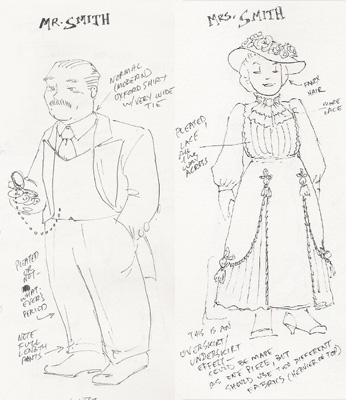 MR. SMITH
NORMAL
(MODERN)
OXFORD SHIRT
W/ VERY WIDE
TIE
PLEATED
OR
NOT-
WHAT-
EVER'S
PERIOD
NOTE
FULL
LENGTH
PANTS
MRS. SMITH
FAKEY
HAIR
MORE
LACE
PLEATED
LACE
ALL THE
WAY
ACROSS
THIS IS AN
OVERSKIRT
UNDERSKIRT
EFFECT-
COULD BE MADE
AS ONE PIECE, BUT
SHOULD USE TWO DIFFERENT
FABRICS (HEAVIER ON TOP)